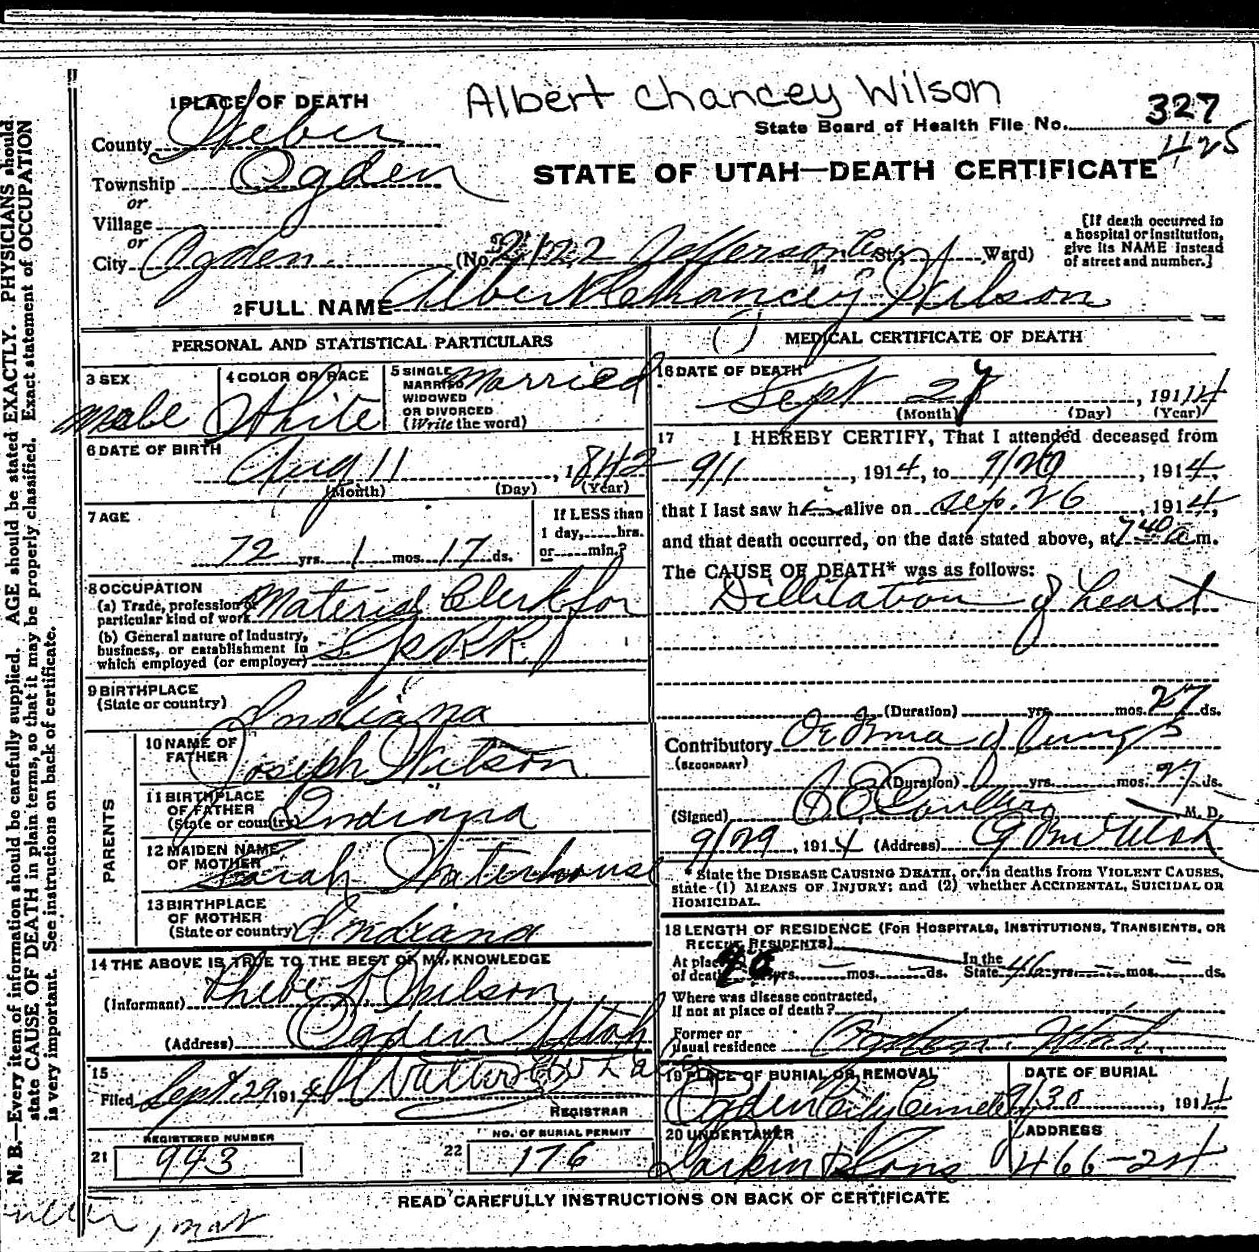 Albert Chancey Wilson
1 PLACE OF DEATH
State Board of Health File No. 327
425
County Weber
Township Ogden
STATE OF UTAH—DEATH CERTIFICATE
or
Village
or
City Ogden (No. 2122 Jefferson Ave St.; Ward)
[If death occurred in a hospital or institution, give its NAME instead of street and number.]
2 FULL NAME Albert Chancey Wilson
PERSONAL AND STATISTICAL PARTICULARS
3 SEX
male
4 COLOR OR RACE
White
5 SINGLE
MARRIED
WIDOWED
OR DIVORCED
(Write the word)
Married
6 DATE OF BIRTH
Aug 11, 1842
(Month) (Day) (Year)
7 AGE
72 yrs. 1 mos. 17 ds.
If LESS than
1 day, hrs.
or min.?
8 OCCUPATION
(a) Trade, profession or
particular kind of work Material Clerk for
(b) General nature of industry,
business, or establishment in
which employed (or employer) S.P.R.R.
9 BIRTHPLACE
(State or country) Indiana
PARENTS
10 NAME OF
FATHER Joseph Wilson
11 BIRTHPLACE
OF FATHER
(State or country) Indiana
12 MAIDEN NAME
OF MOTHER Sarah Waterhouse
13 BIRTHPLACE
OF MOTHER
(State or country) Indiana
14 THE ABOVE IS TRUE TO THE BEST OF MY KNOWLEDGE
(Informant) Phebe D. Wilson
(Address) Ogden Utah
15
Filed Sept. 29 1914
REGISTRAR
REGISTERED NUMBER
21 943
NO. OF BURIAL PERMIT
22 176
MEDICAL CERTIFICATE OF DEATH
16 DATE OF DEATH
Sept 28, 1914
(Month) (Day) (Year)
17 I HEREBY CERTIFY, That I attended deceased from
9/1, 1914, to 9/20, 1914,
that I last saw h alive on Sep. 26, 1914,
and that death occurred, on the date stated above, at 7 40 a.m.
The CAUSE OF DEATH* was as follows:
Dillitation of heart
(Duration) yrs. mos. 27 ds.
Contributory Oedema of lungs
(SECONDARY)
(Duration) yrs. mos. 27 ds.
(Signed) M. D.
9/29, 1914 (Address) Ogden Utah
* State the DISEASE CAUSING DEATH, or, in deaths from VIOLENT CAUSES,
state (1) MEANS OF INJURY; and (2) whether ACCIDENTAL, SUICIDAL OR
HOMICIDAL.
18 LENGTH OF RESIDENCE (FOR HOSPITALS, INSTITUTIONS, TRANSIENTS, OR
RECENT RESIDENTS)
At place
of death yrs. mos. ds.
In the
State 46 yrs. mos. ds.
Where was disease contracted,
if not at place of death?
Former or
usual residence Ogden Utah
19 PLACE OF BURIAL OR REMOVAL
Ogden City Cemetery
DATE OF BURIAL
9/30, 1914
20 UNDERTAKER
Larkin & Sons
ADDRESS
466-24
READ CAREFULLY INSTRUCTIONS ON BACK OF CERTIFICATE
N. B.—Every item of information should be carefully supplied. AGE should be stated EXACTLY. PHYSICIANS should
state CAUSE OF DEATH in plain terms, so that it may be properly classified. Exact statement of OCCUPATION
is very important. See instructions on back of certificate.